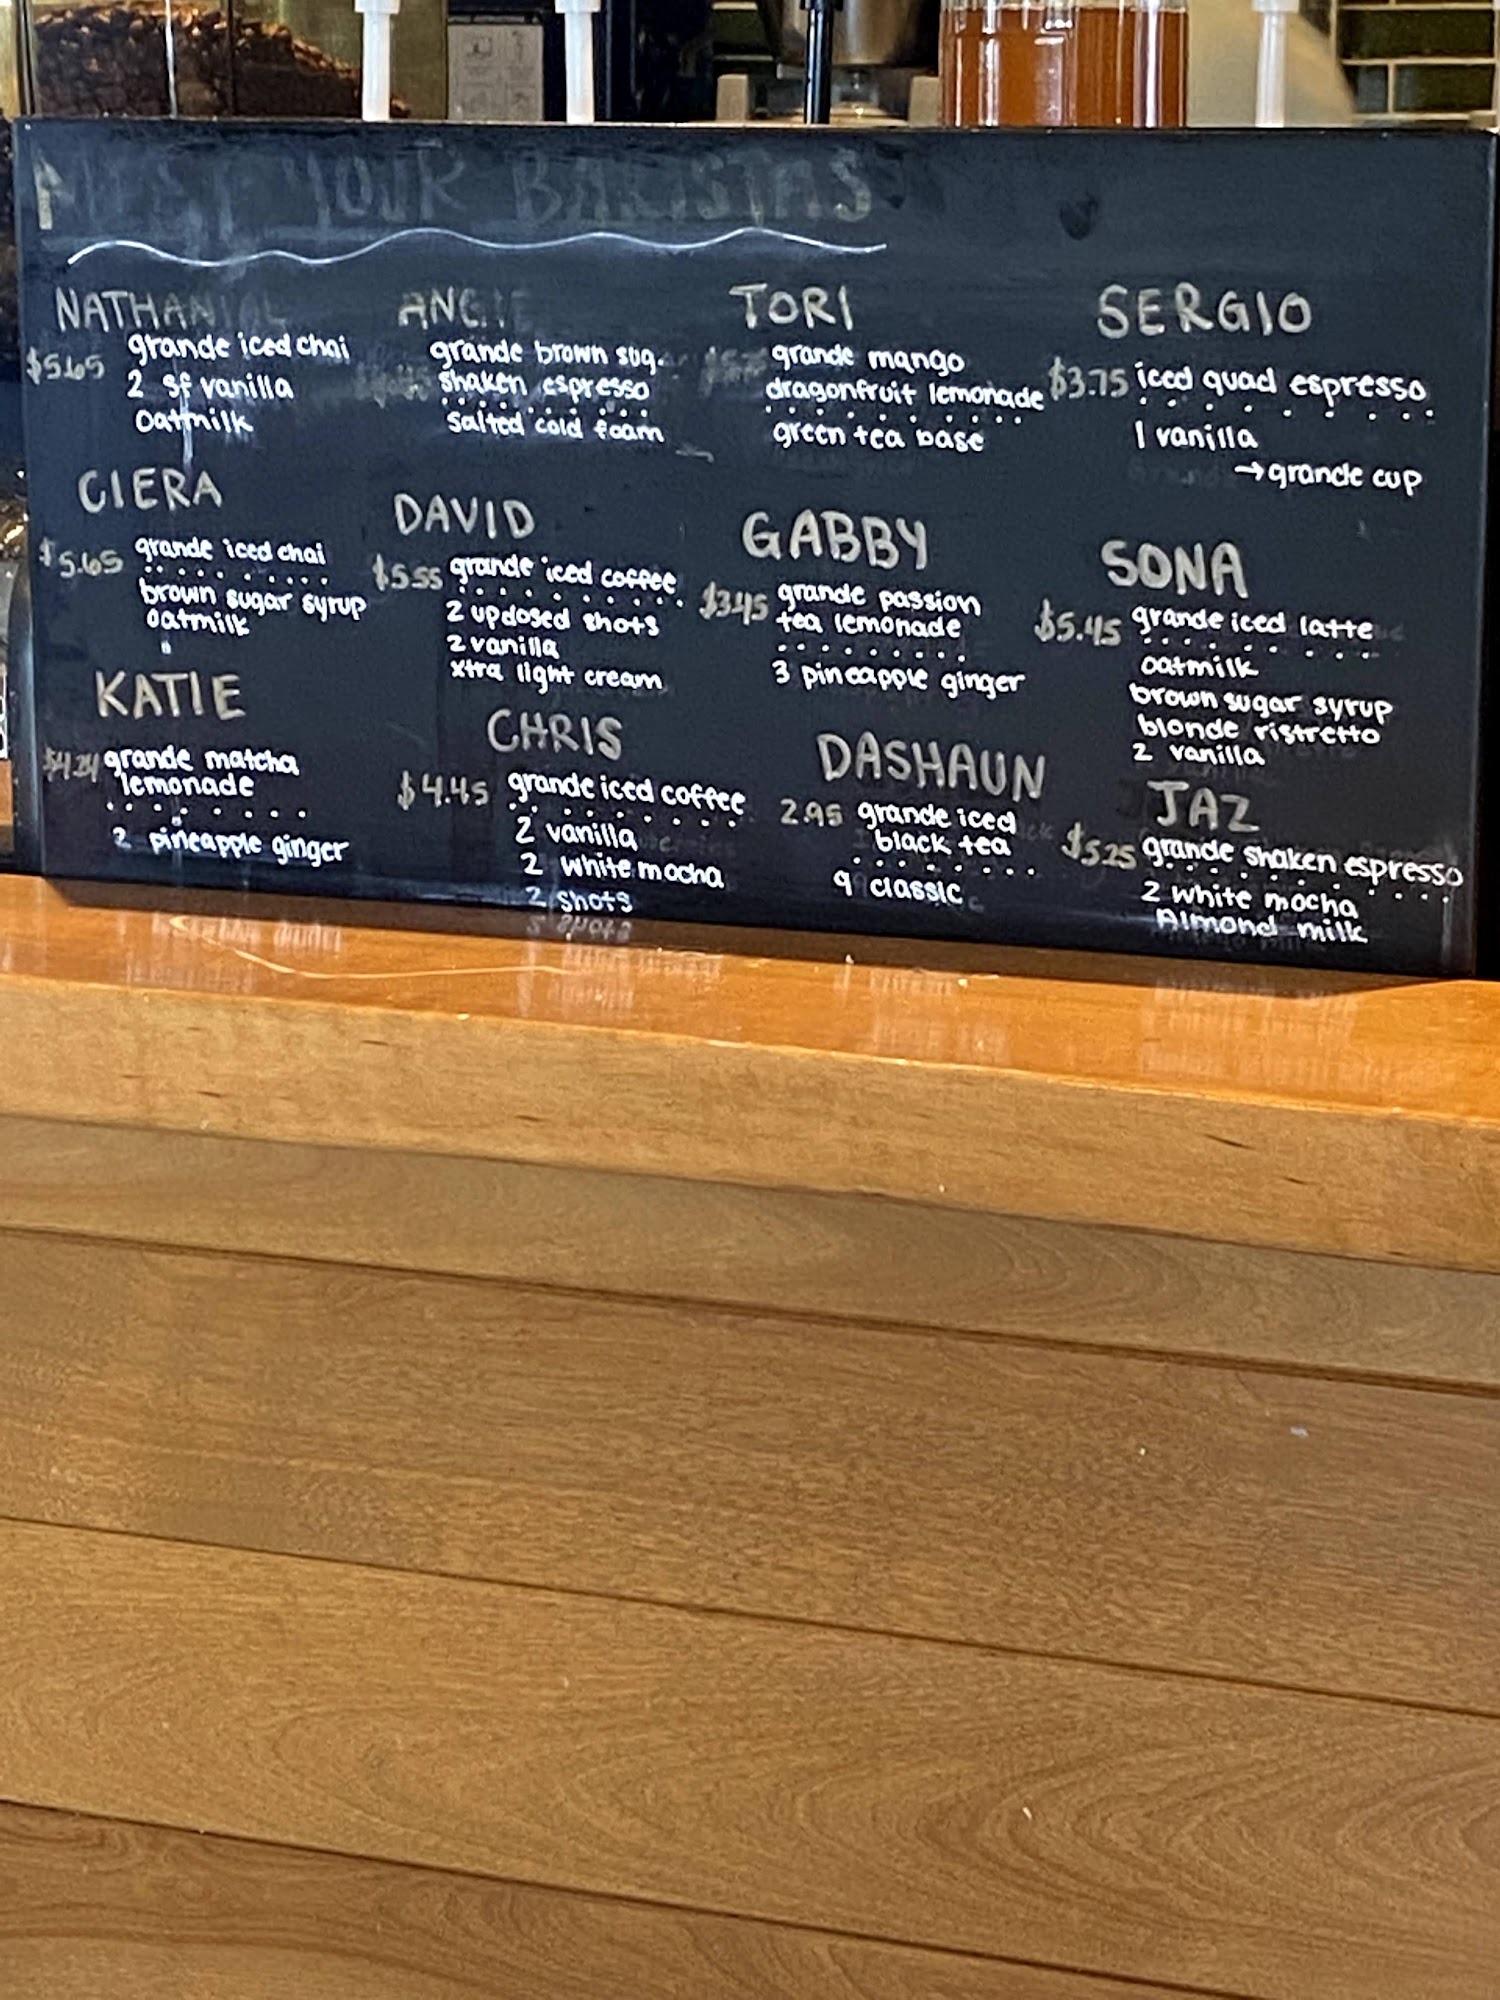 MEET YOUR BARISTAS
NATHANIAL
$5.65 grande iced chai
2 sf vanilla
oatmilk
ANGIE
grande brown sug.
shaken espresso
salted cold foam
TORI
grande mango
dragonfruit lemonade
green tea base
SERGIO
$3.75 iced quad espresso
1 vanilla
→grande cup
CIERA
$5.65 grande iced chai
brown sugar syrup
oatmilk
DAVID
$5.55 grande iced coffee
2 updosed shots
2 vanilla
xtra light cream
GABBY
$3.45 grande passion
tea lemonade
3 pineapple ginger
SONA
$5.45 grande iced latte
oatmilk
brown sugar syrup
blonde ristretto
2 vanilla
KATIE
$4.24 grande matcha
lemonade
2 pineapple ginger
CHRIS
$4.45 grande iced coffee
2 vanilla
2 white mocha
2 shots
DASHAUN
2.95 grande iced
black tea
9 classic
JAZ
$5.25 grande shaken espresso
2 white mocha
Almond milk